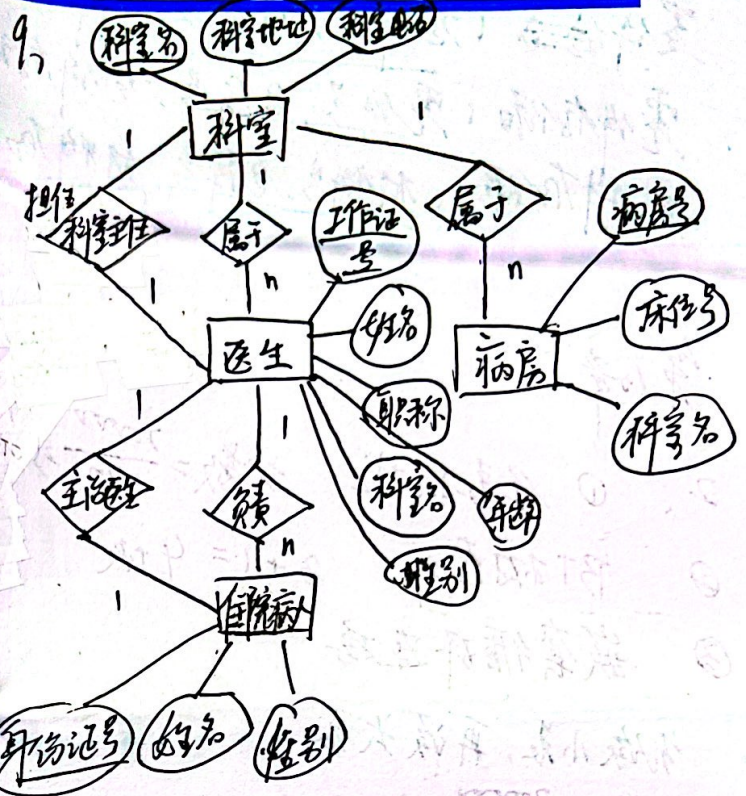 9、
科室名
科室地址
科室电话
科室
1
1
1
担任
科室主任
属于
属于
工作证号
病房号
1
n
n
姓名
床位号
医生
病房
职称
科室名
1
1
科室名
年龄
主治医生
负责
性别
n
1
住院病人
身份证号
姓名
性别